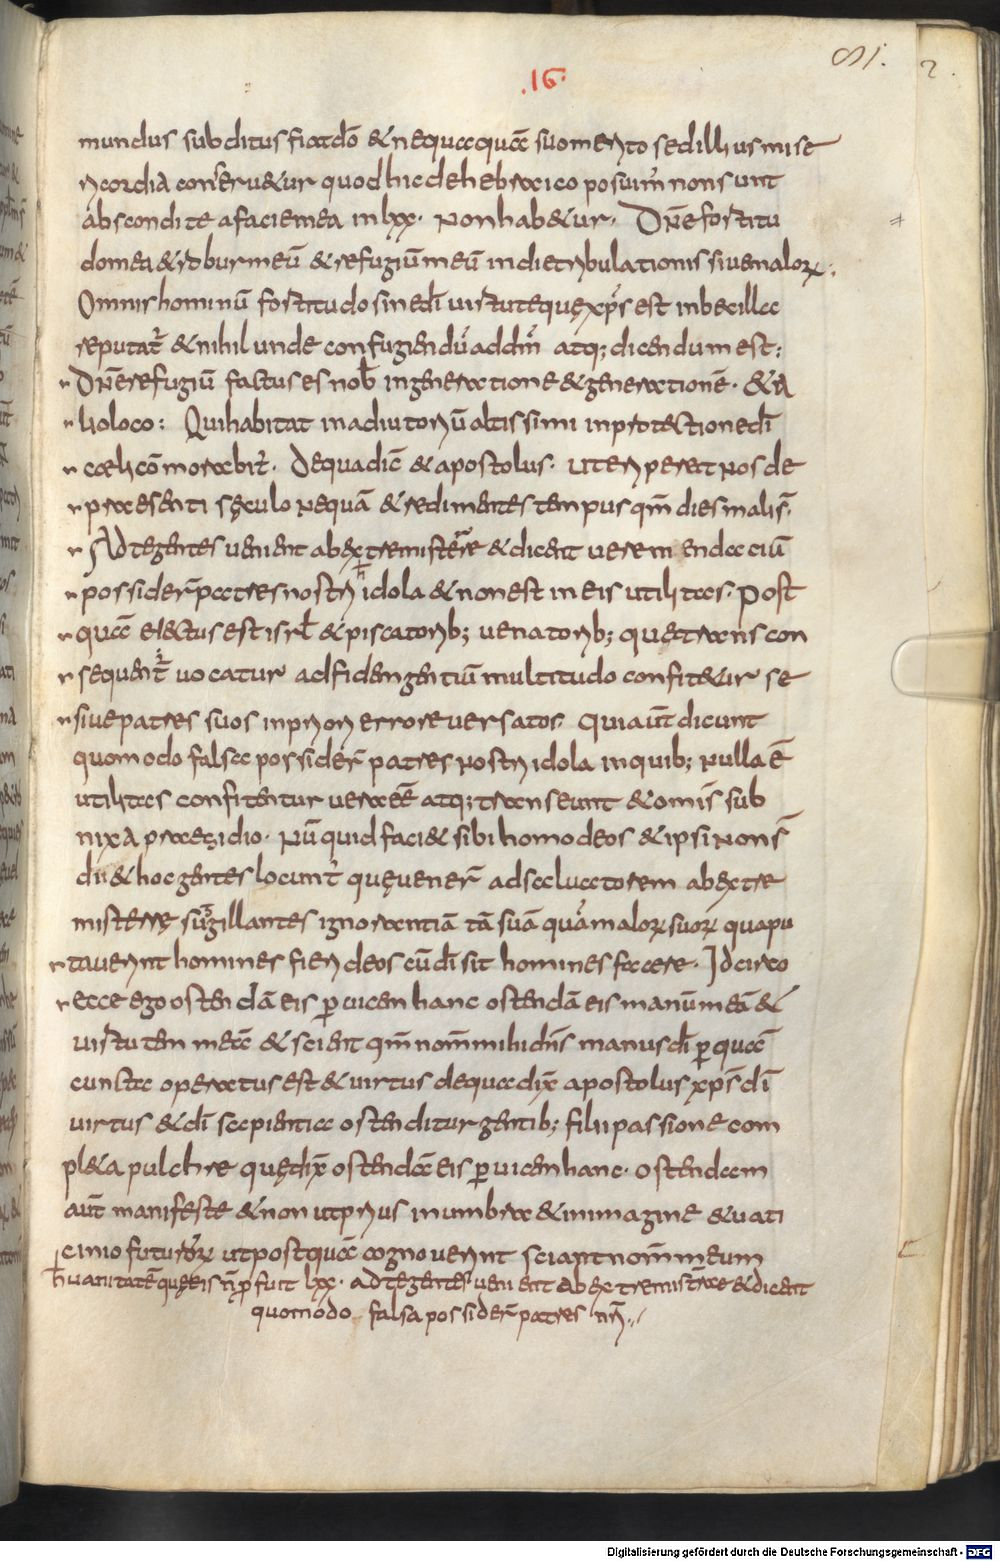 81. 2.
.16.
mundus subditus fiat dō & nequaquā suo merito sed illius mise
ricordia conseruetur quod hic de hebraico posuim' non sunt
abscondite a facie mea in lxx. non habetur. Dn̄e fortitu
do mea & robur meū & refugiū meū in die tribulationis siue malorꝝ:
Omnis hominū fortitudo sine dī uirtute quę xp̄s est inbecilla
reputat̄ & nihil unde confugiendū ad dn̄m atq; dicendum est:
Dn̄e refugiū factus es nob̄ in generatione & generationē. & a
lio loco: Qui habitat in adiutoriū altissimi in protectione dī
cæli cōmorabit̄. De qua dic̄ & apostolus. ut eriperet nos de
præsenti sęculo nequā & redimentes tempus qm̄ dies mali s̄.
Ad te gentes uenient ab extremis terræ & dicent uere mendaciū
posider̄ patres nostri idola & non est in eis utilitas. Post
quā electus est isrl̄ & piscatorib; uenatorib; quę trans con
sequent̄ uocatur ad fidem gentiū multitudo confitetur se
siue patres suos in priori errore uersatos. Qui aūt dicunt
quomodo falsa possider̄ patres nostri idola in quib; nulla ē
utilitas confitentur uera eē atq; transeunt & om̄is sub
nixa præsidio. Nū quid faci& sibi homo deos & ipsi non s̄
dii & hoc gentes locunt̄ quę uener̄ ad saluatorem ab extre
mis terrę sugillantes ignorantiā tā suā quā malorꝝ suorꝝ qua pu
tauerunt homines fieri deos cū dī sit homines facere. Idcirco
ecce ego ostendā eis ꝑ uicem hanc ostendā eis manū meā &
uirtutem meā & scient qm̄ nom̄ mihi dn̄s manus dī ꝑ quā
cuncta operatus est & uirtus de qua dix̄ apostolus xp̄s dī
uirtus & dī sapientia ostenditur gentib; filii passione com
pleta pulchre quę dix̄ ostendā eis ꝑ uicem hanc. ostendam
aūt manifeste & non ut prius in umbra & imagine & uati
cinio futurorꝝ ut postquā cognouerint sciant nom̄ meum
h̄ uanitatē quę eis n̄ ꝓfuit lxx. ad te gentes uenient ab extremis terræ & dicent
quomodo falsa possider̄ patres nr̄i.
Digitalisierung gefördert durch die Deutsche Forschungsgemeinschaft - DFG